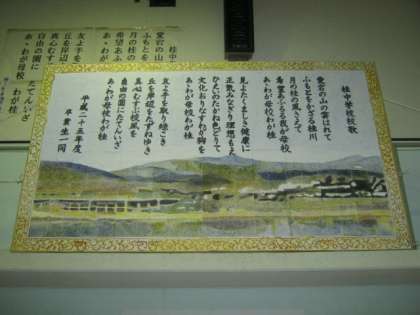 桂中学校校歌
愛宕の山の雲はれて
ふもとをかざる桂川
月の桂の風さえて
希望あふるる我が母校
あゝわが母校わが桂
見よたくましき健康に
正気みなぎり理想もゆ
ひえいのたかね色どりて
文化おりなすわが胸を
あゝわが母校わが桂
友よ手を取り
丘を岸辺をたずねゆき
真心むすぶ校風を
自由の園にたてんいざ
あゝわが母校わが桂
平成二十五年度
卒業生一同
桂中
愛宕の山
ふもとを
月の桂の
希望あふ
あゝわが
友よ手を
丘を岸辺
真心むす
自由の園に たてんいざ
あゝわが母校 わが桂